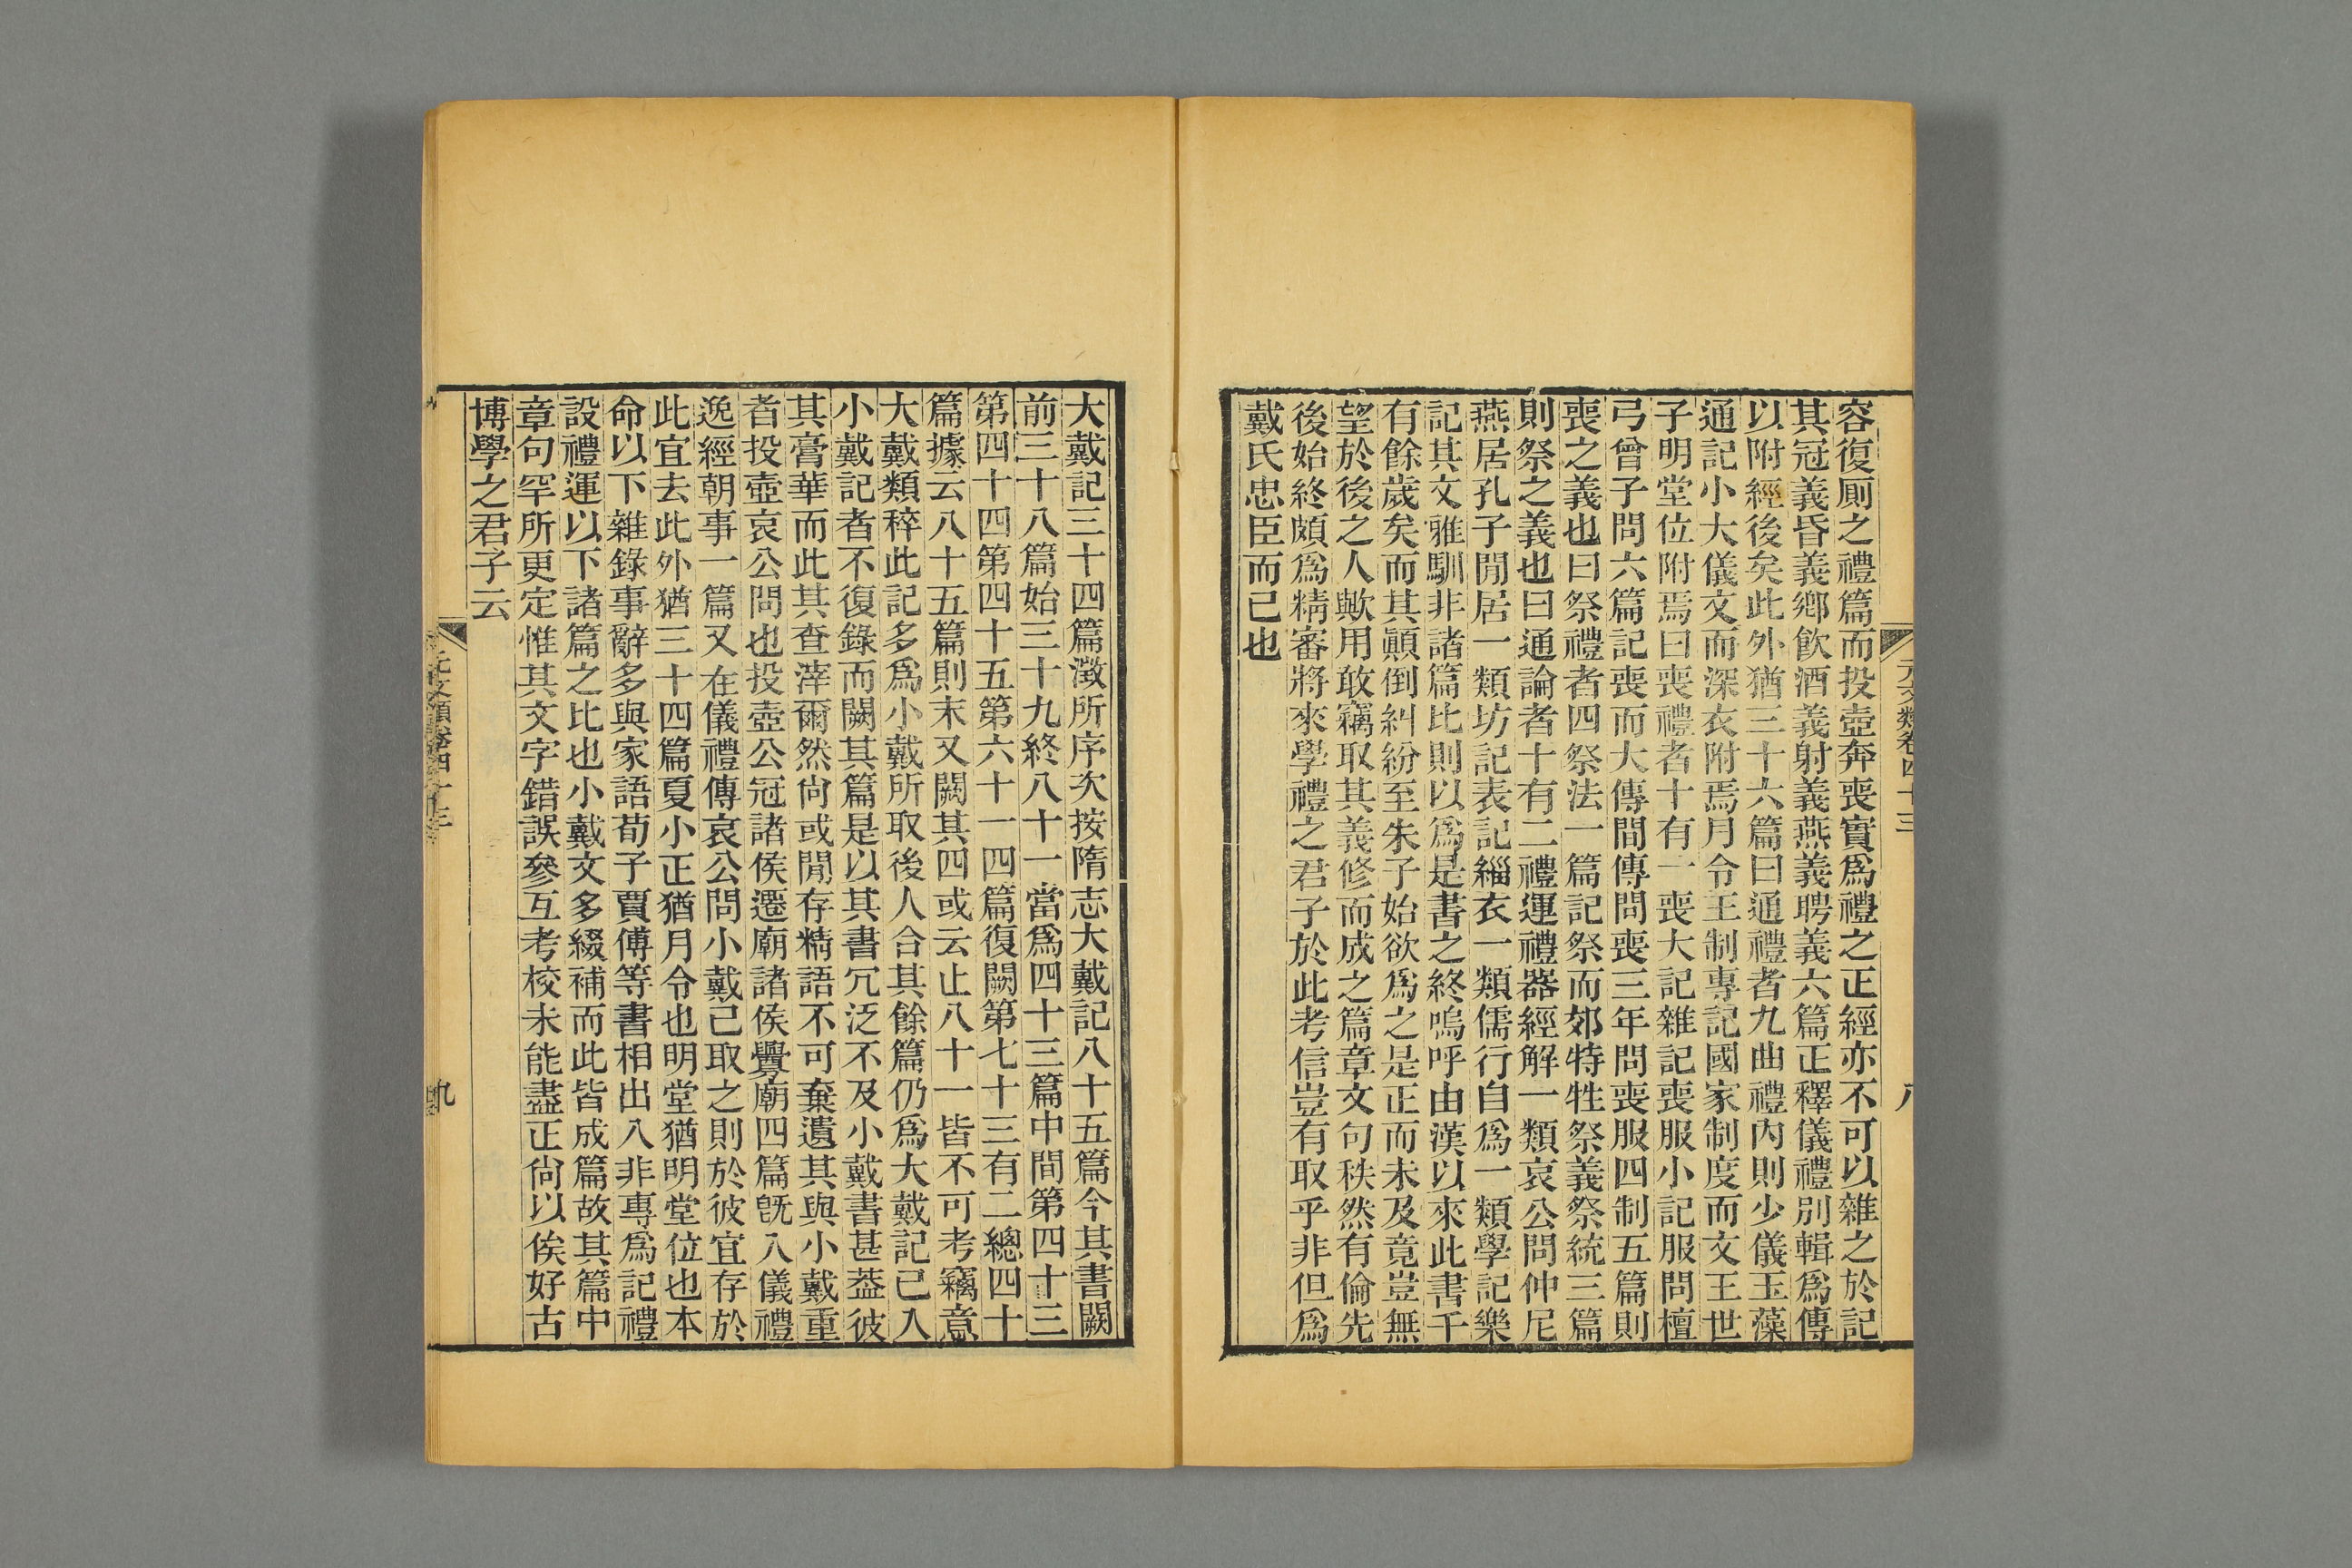 元文類卷四十三
八
容復厠之禮篇而投壺奔喪實爲禮之正經亦不可以雜之於記
其冠義昏義鄉飮酒義射義燕義聘義六篇正釋儀禮別輯爲傳
以附經後矣此外猶三十六篇曰通禮者九曲禮內則少儀玉藻
通記小大儀文而深衣附焉月令王制專記國家制度而文王世
子明堂位附焉曰喪禮者十有一喪大記雜記喪服小記服問檀
弓曾子問六篇記喪而大傳間傳問喪三年問喪服四制五篇則
喪之義也曰祭禮者四祭法一篇記祭而郊特牲祭義祭統三篇
則祭之義也曰通論者十有二禮運禮器經解一類哀公問仲尼
燕居孔子閒居一類坊記表記緇衣一類儒行自爲一類學記樂
記其文雅馴非諸篇比則以爲是書之終嗚呼由漢以來此書千
有餘歲矣而其顚倒糾紛至朱子始欲爲之是正而未及竟豈無
望於後之人歟用敢竊取其義修而成之篇章文句秩然有倫先
後始終頗爲精審將來學禮之君子於此考信豈有取乎非但爲
戴氏忠臣而已也
大戴記三十四篇澂所序次按隋志大戴記八十五篇今其書闕
前三十八篇始三十九終八十一當爲四十三篇中間第四十三
第四十四第四十五第六十一四篇復闕第七十三有二總四十
篇據云八十五篇則末又闕其四或云止八十一皆不可考竊意
大戴類稡此記多爲小戴所取後人合其餘篇仍爲大戴記已入
小戴記者不復錄而闕其篇是以其書冗泛不及小戴書甚葢彼
其膏華而此其查滓爾然尙或閒存精語不可棄遺其與小戴重
者投壺哀公問也投壺公冠諸侯遷廟諸侯釁廟四篇旣入儀禮
逸經朝事一篇又在儀禮傳哀公問小戴已取之則於彼宜存於
此宜去此外猶三十四篇夏小正猶月令也明堂猶明堂位也本
命以下雜錄事辭多與家語荀子賈傅等書相出入非專爲記禮
設禮運以下諸篇之比也小戴文多綴補而此皆成篇故其篇中
章句罕所更定惟其文字錯誤參互考校未能盡正尙以俟好古
博學之君子云
元文類卷四十三
九